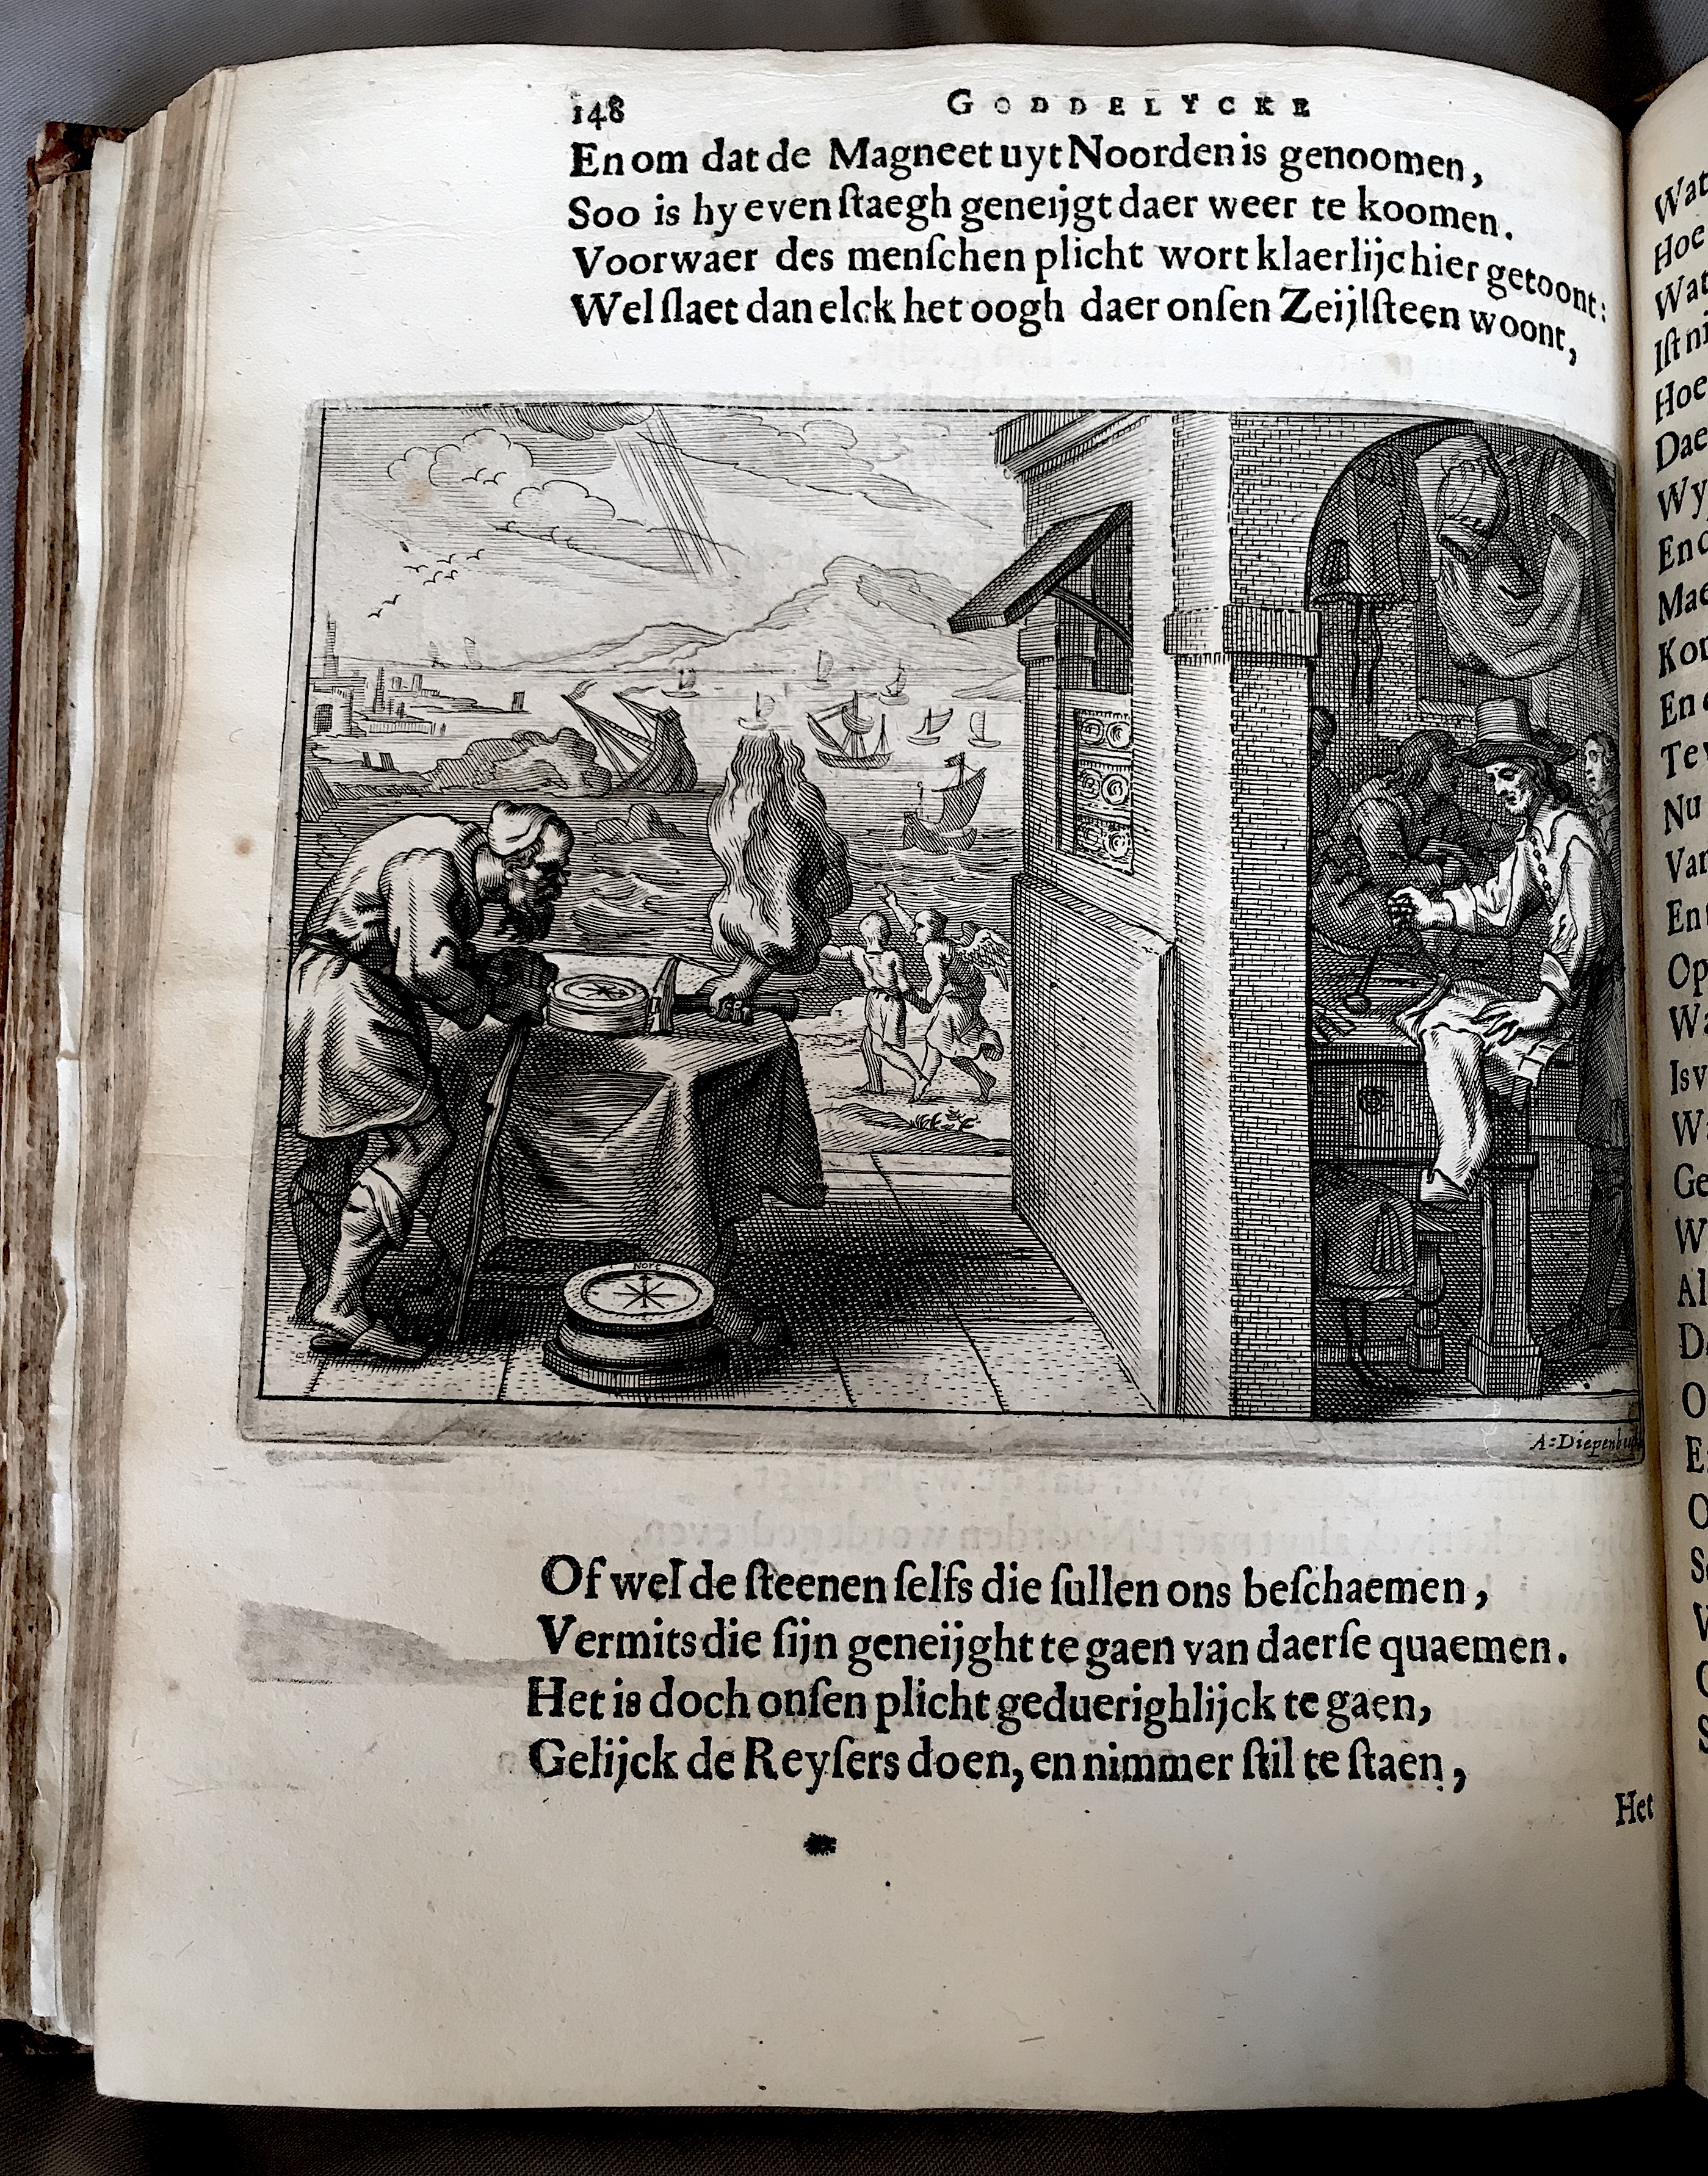 148 GODDELYCKE
En om dat de Magneet uyt Noorden is genoomen,
Soo is hy even ſtaegh geneijgt daer weer te koomen.
Voorwaer des menſchen plicht wort klaerlijc hier getoont:
Wel ſlaet dan elck het oogh daer onſen Zeijlſteen woont,
Nort
Of wel de ſteenen ſelfs die ſullen ons beſchaemen,
Vermits die ſijn geneijght te gaen van daerſe quaemen.
Het is doch onſen plicht geduerighlijck te gaen,
Gelijck de Reyſers doen, en nimmer ſtil te ſtaen,
Het
Wat
Hoe
Wat
Hoe